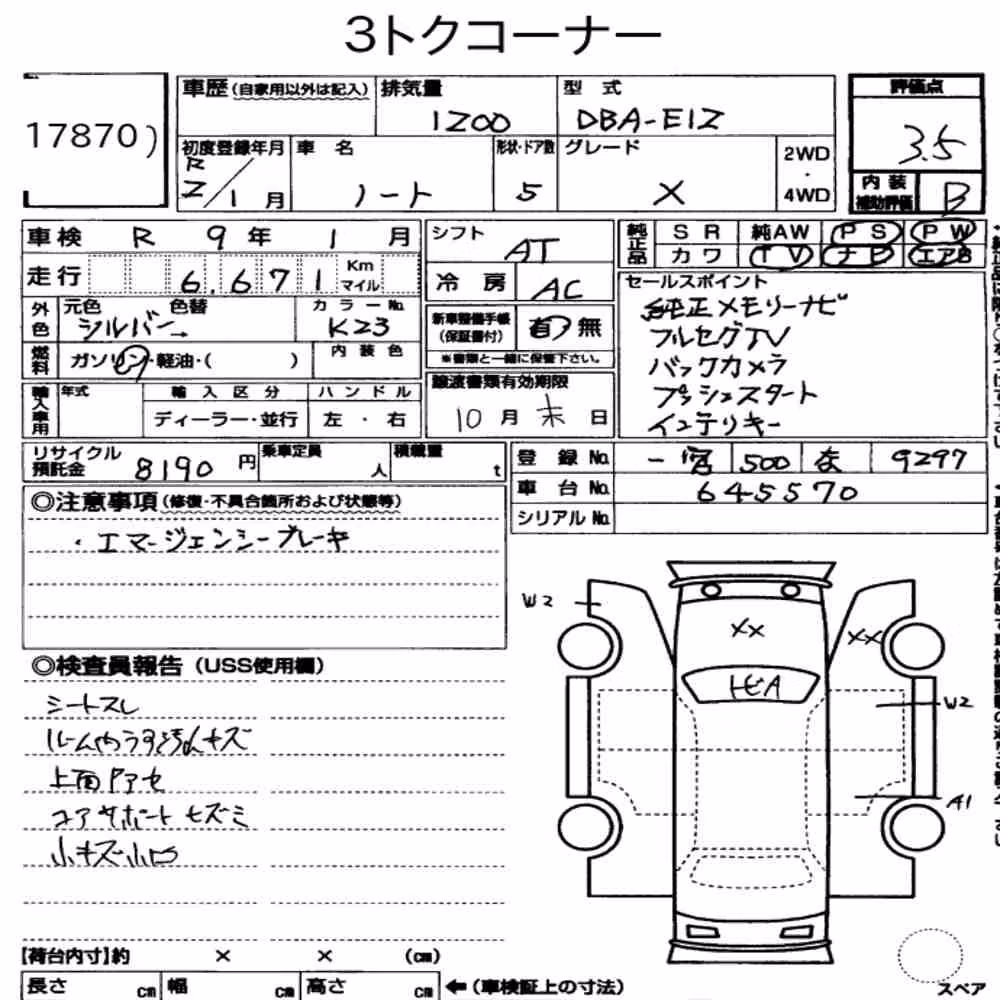 3トクコーナー
17870)
車歴(自家用以外は記入)
排気量
1200
型式
DBA-E12
評価点
3.5
内装補助評価
B
初度登録年月
R2/1月
車名
ノート
形状・ドア数
5
グレード
X
2WD・4WD
車検 R 9年 1月
走行 6.671 Km マイル
外色 元色 色替
シルバー→
カラーNo.
K23
燃料 ガソリン・軽油・( )
内装色
輸入車用 年式 輸入区分 ハンドル
ディーラー・並行 左・右
シフト AT
冷房 AC
新車整備手帳(保証書付) 有・無
※書類と一緒に保管下さい。
譲渡書類有効期限
10月末日
純正品 SR 純AW PS PW
カワ TV ナビ エアB
セールスポイント
純正メモリーナビ
フルセグTV
バックカメラ
プッシュスタート
インテリキー
リサイクル預託金 8190円
乗車定員 人
積載量 t
登録No. 一宮 500 9297
車台No. 645570
シリアルNo.
◎注意事項(修復・不具合箇所および状態等)
・エマージェンシーブレーキ
◎検査員報告(USS使用欄)
シートスレ
ルーム内うす汚れキズ
上面アセ
コアサポートヒズミ
小キズ小凹
W2
XX
XX
トビA
W2
A1
【荷台内寸】約 × × (cm)
長さ cm 幅 cm 高さ cm ←(車検証上の寸法)
スペア